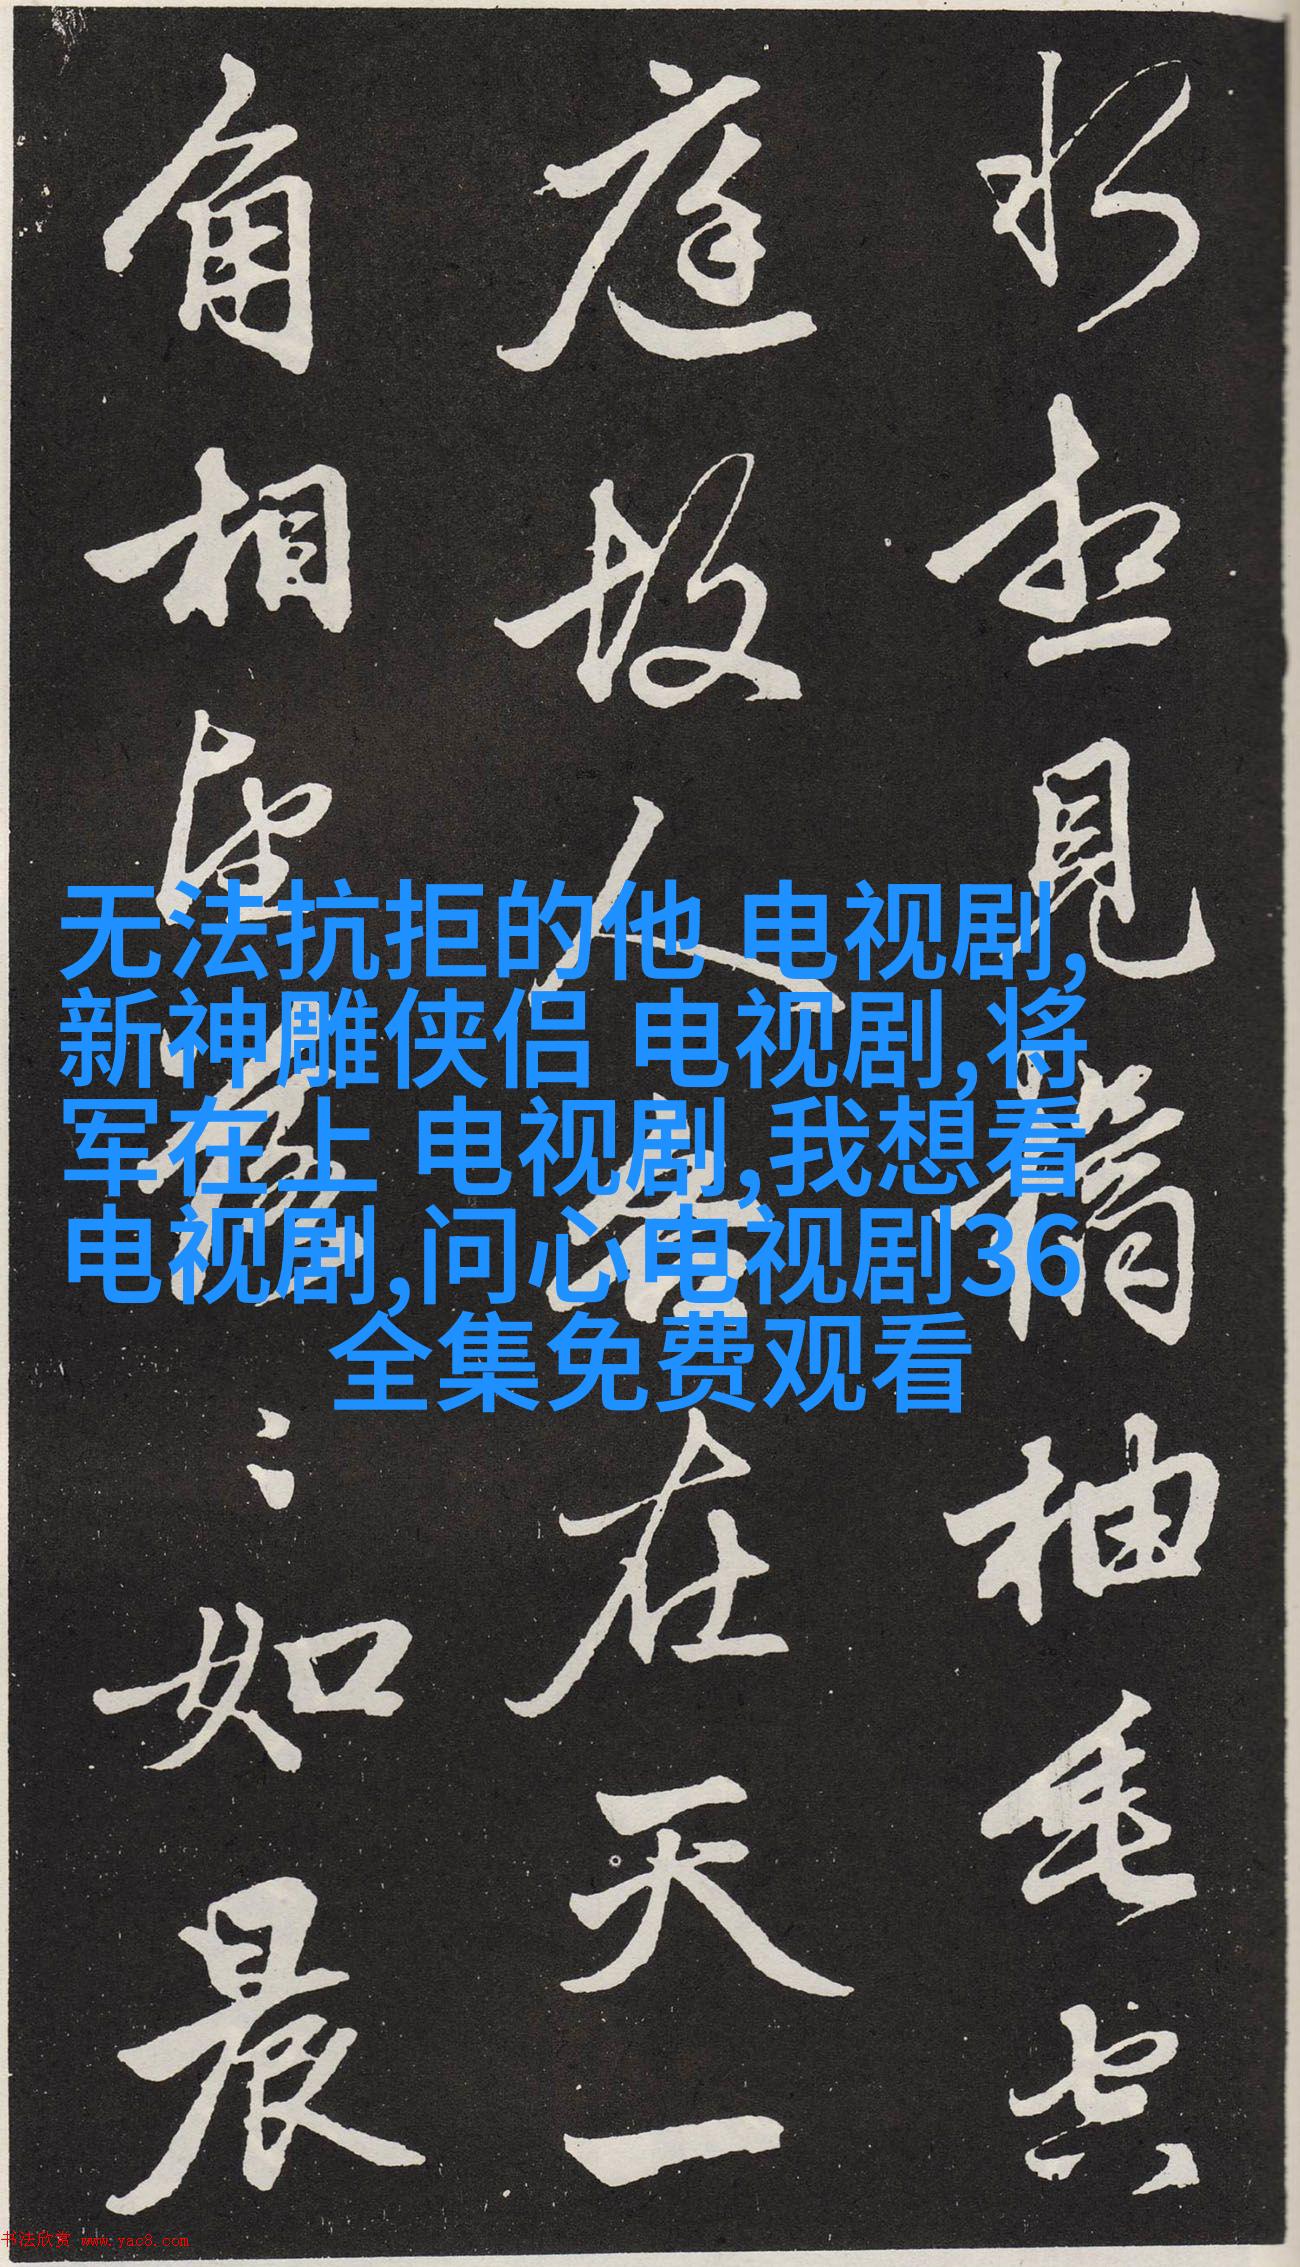 水想见橘柚垂空
庭故人各在天一
角相望落〻如晨
无法抗拒的他 电视剧,
新神雕侠侣 电视剧,将
军在上 电视剧,我想看
电视剧,问心电视剧36
全集免费观看
书法欣赏 www.yac8.com